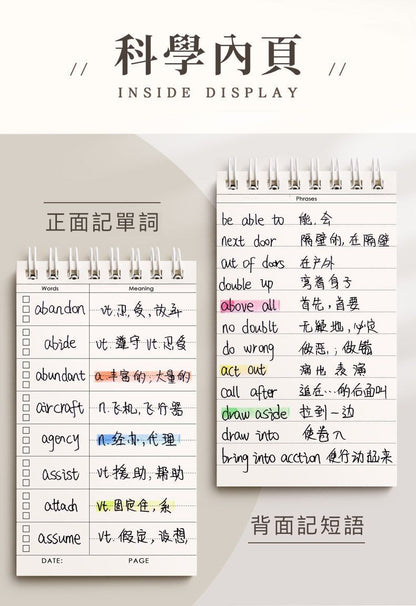 科學內頁
INSIDE DISPLAY
正面記單詞
Words Meaning
abandon vt.忍受,放弃
abide vt.遵守 vt.忍受
abundant a.丰富的;大量的
aircraft n.飞机,飞行器
agency n.经办,代理
assist vt.援助,帮助
attach vt.固定住,系
assume vt.假定,设想,
DATE: PAGE
Phrases
be able to 能,会
next door 隔壁的,在隔壁
out of doors 在户外
double up 弯着身子
above all 首先,首要
no doublt 无疑地,必定
do wrong 做恶;做错
act out 演出 表演
call after 追在…的后面叫
draw aside 拉到一边
draw into 使卷入
bring into acction 使行动起来
背面記短語